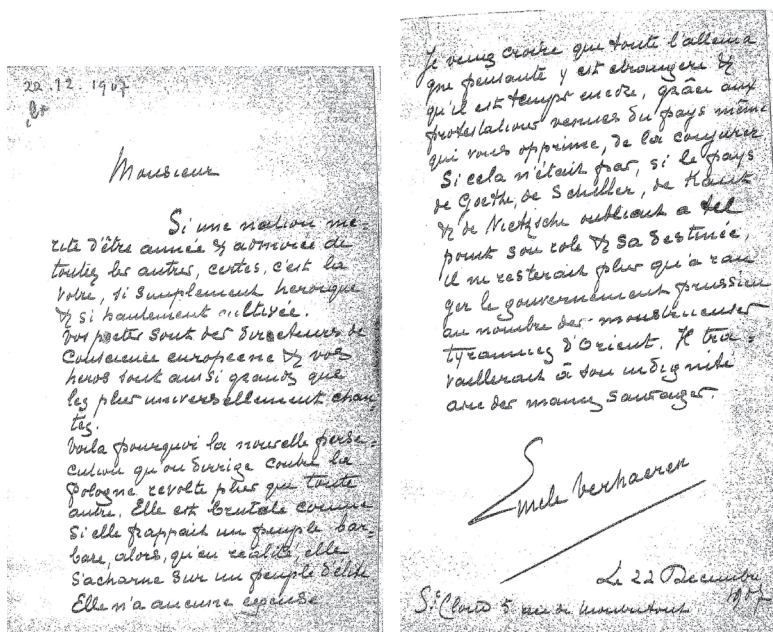 22.12.1907
Monsieur
Si une nation mé-
rite d'être aimée & admirée de
toutes les autres, certes, c'est la
vôtre, si simplement héroique
& si hautement cultivée.
Vos poètes sont des directeurs de
Conscience européenne & vos
heros sont aussi grands que
les plus universellement chan-
tés.
Voilà pourquoi la nouvelle persé-
cution qu'on dirige contre la
Pologne révolte plus que toute
autre. Elle est brutale comme
si elle frappait un peuple bar-
bare, alors, qu'en réalité, elle
s'acharne sur un peuple d'élite
Elle n'a aucune excuse
Je veux croire que toute l'allema
gne pensante y est étrangère &
qu'il est temps encore, grâce aux
protestations venues du pays même
qui vous opprime, de la conjurer
Si cela n'était pas, si le pays
de Goethe, de Schiller, de Kant
& de Nietzsche oubliait a tel
point son role & sa destinée,
il ne resterait plus qu'à ran
ger le gouvernement prussien
au nombre des monstrueuses
tyrannies d'Orient. Il tra-
vaillerait à son indignité
avec des mains sauvages.
Emile Verhaeren
Le 22 Décembre
1907
St Cloud 5 rue de Montretout